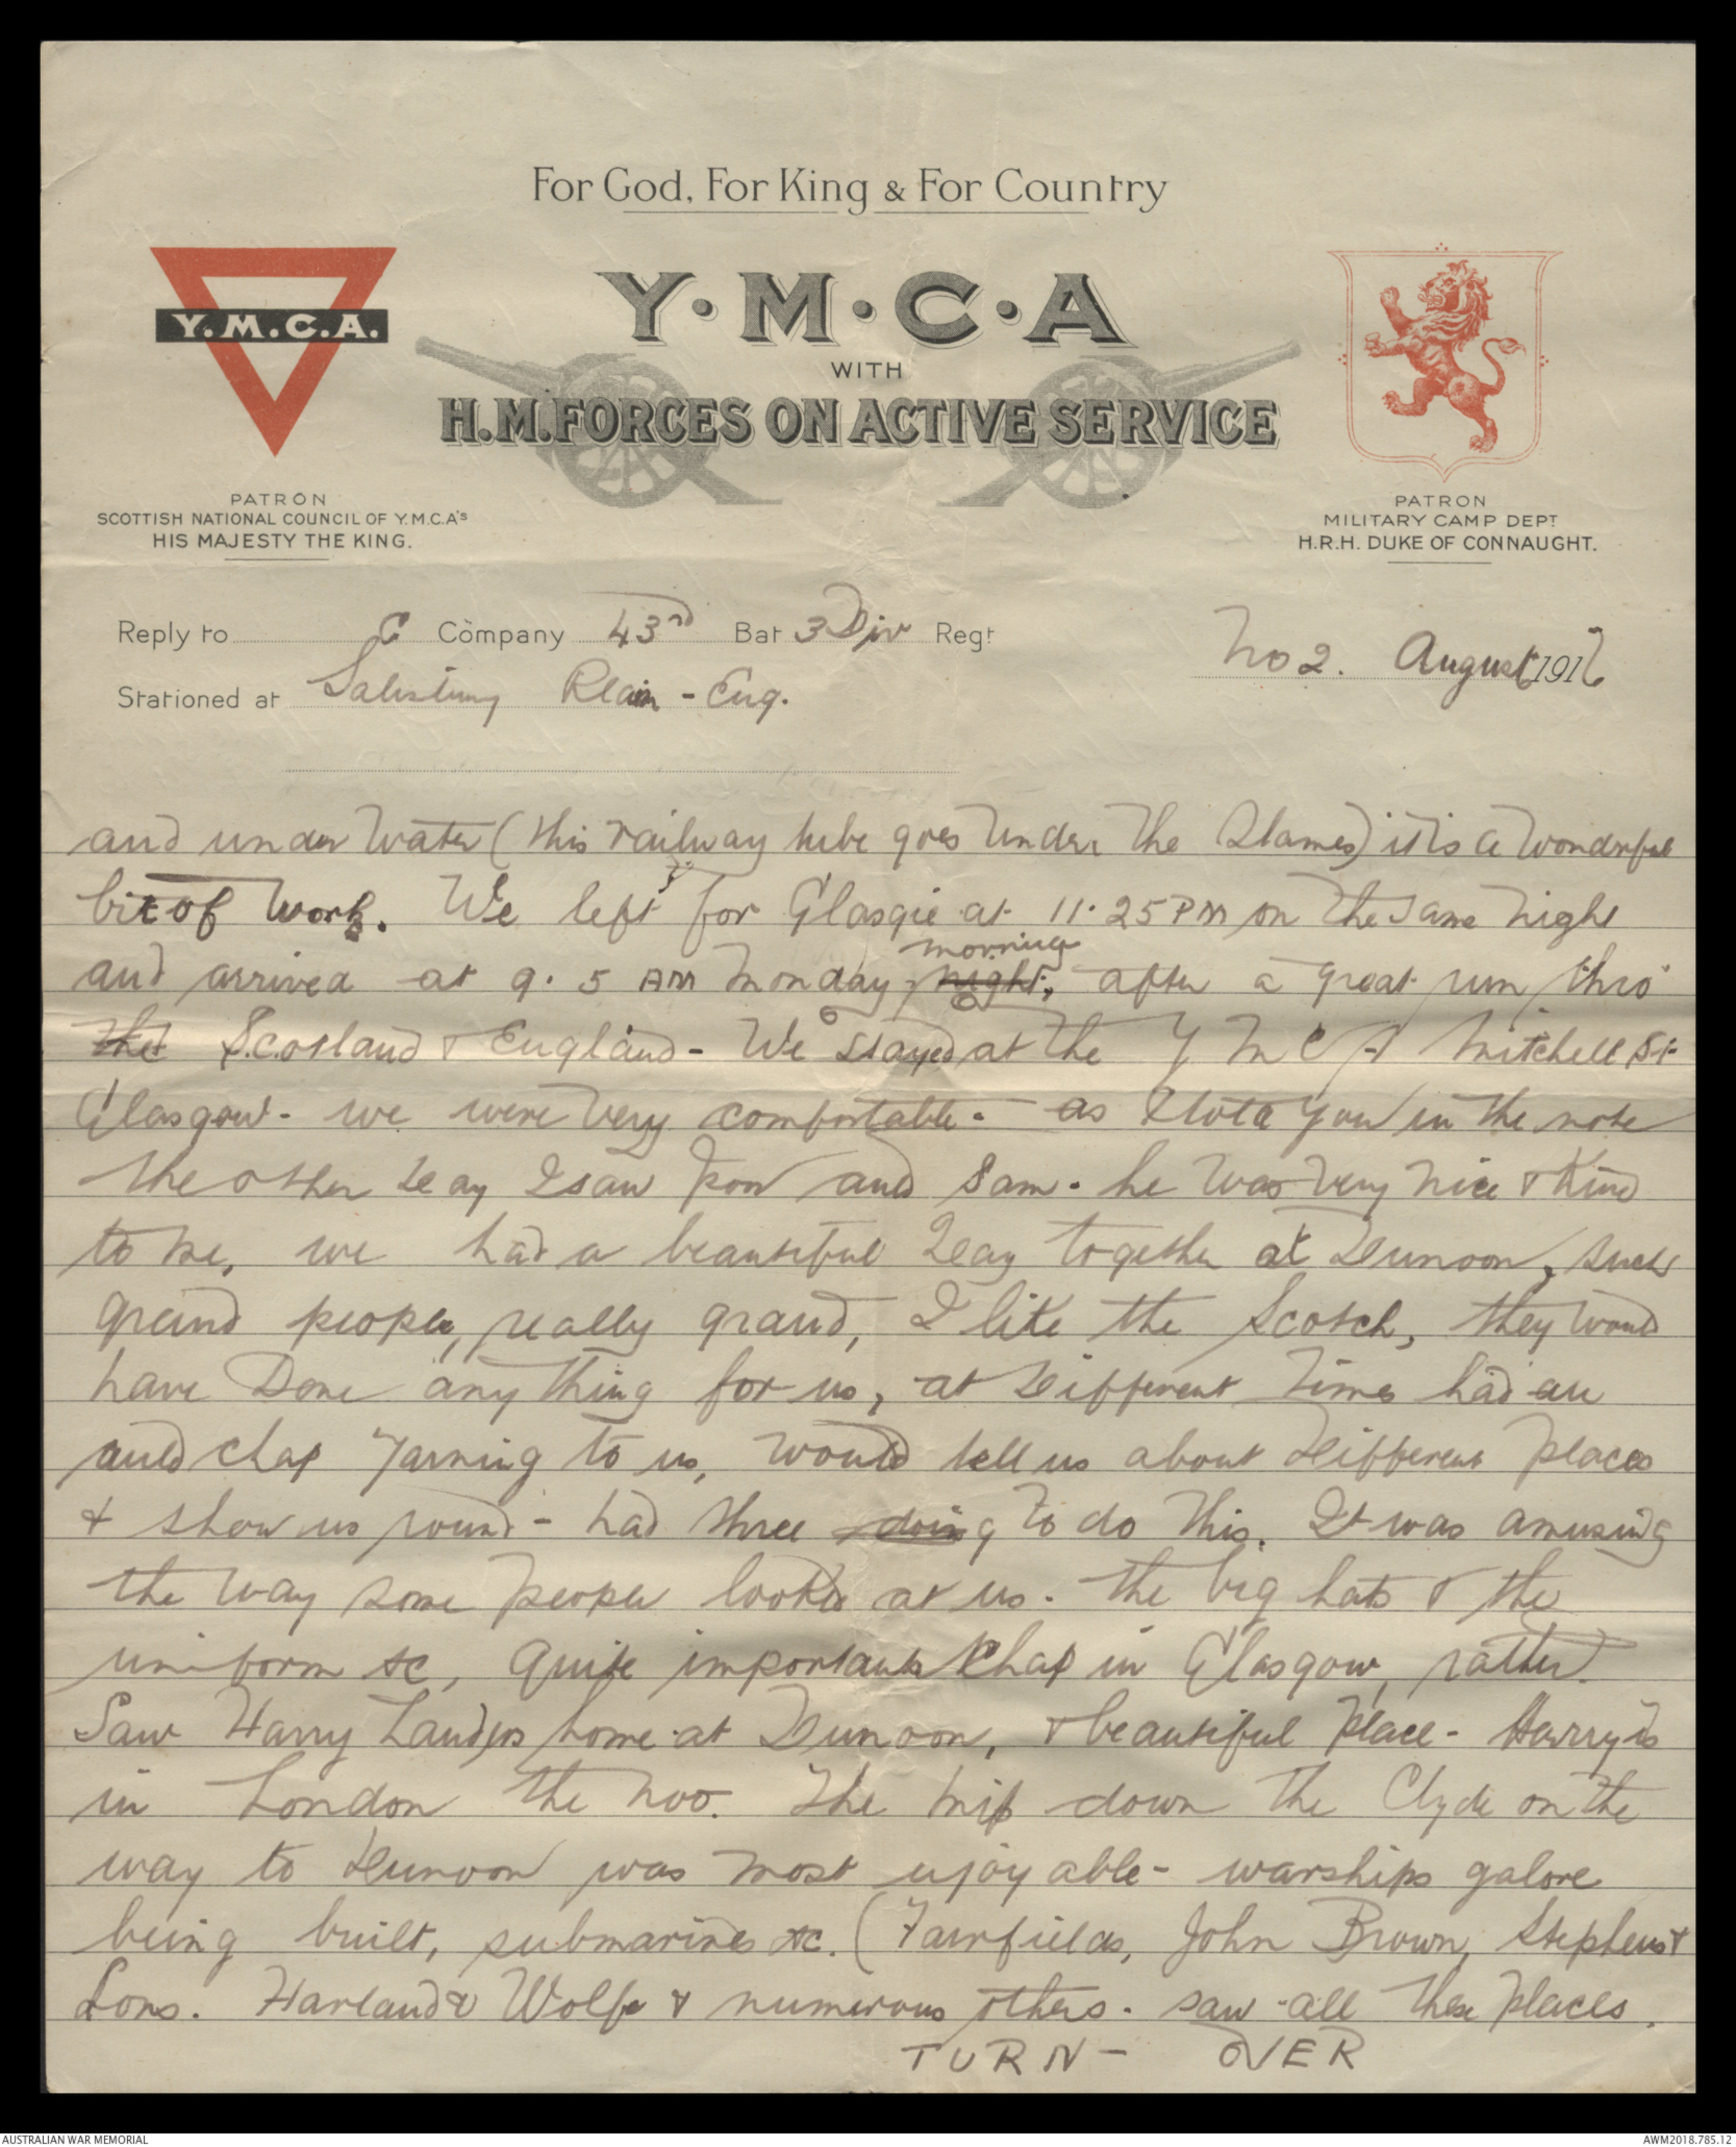 For God, For King & For Country
Y.M.C.A.
Y·M·C·A
WITH
H.M. FORCES ON ACTIVE SERVICE
PATRON
SCOTTISH NATIONAL COUNCIL OF Y.M.C.A's
HIS MAJESTY THE KING.
PATRON
MILITARY CAMP DEPT
H.R.H. DUKE OF CONNAUGHT.
Reply to C Company 43rd Bat 3 Div Regt
No 2. August 1916
Stationed at Salisbury Plain - Eng.
and under water (this railway tube goes under the Thames) it is a wonderful
bit of work. We left for Glasgie at 11.25 PM on the same night
and arrived at 9.5 AM Monday night, morning after a great run thro'
the Scotland & England - We stayed at the Y M C A Mitchell St
Glasgow - we were very comfortable - as I told you in the note
the other day I saw Pow and Sam. he was very nice & kind
to me, we had a beautiful day together at Dunoon, such
grand people, really grand, I like the Scotch, they would
have done anything for us, at different times had an
auld chap yarning to us, would tell us about different places
& show us round - had three doing to do this. It was amusing
the way some people looked at us. the big hats & the
uniform &c, quite important chap in Glasgow, rather.
Saw Harry Lauders home at Dunoon, & beautiful place - Harry is
in London the noo. The trip down the Clyde on the
way to Dunoon was most ejoyable - warships galore
being built, submarines &c. (Fairfields, John Brown, Stephens &
Sons. Harland & Wolfe & numerous others. saw all these places.
TURN - OVER
AUSTRALIAN WAR MEMORIAL
AWM2018.785.12